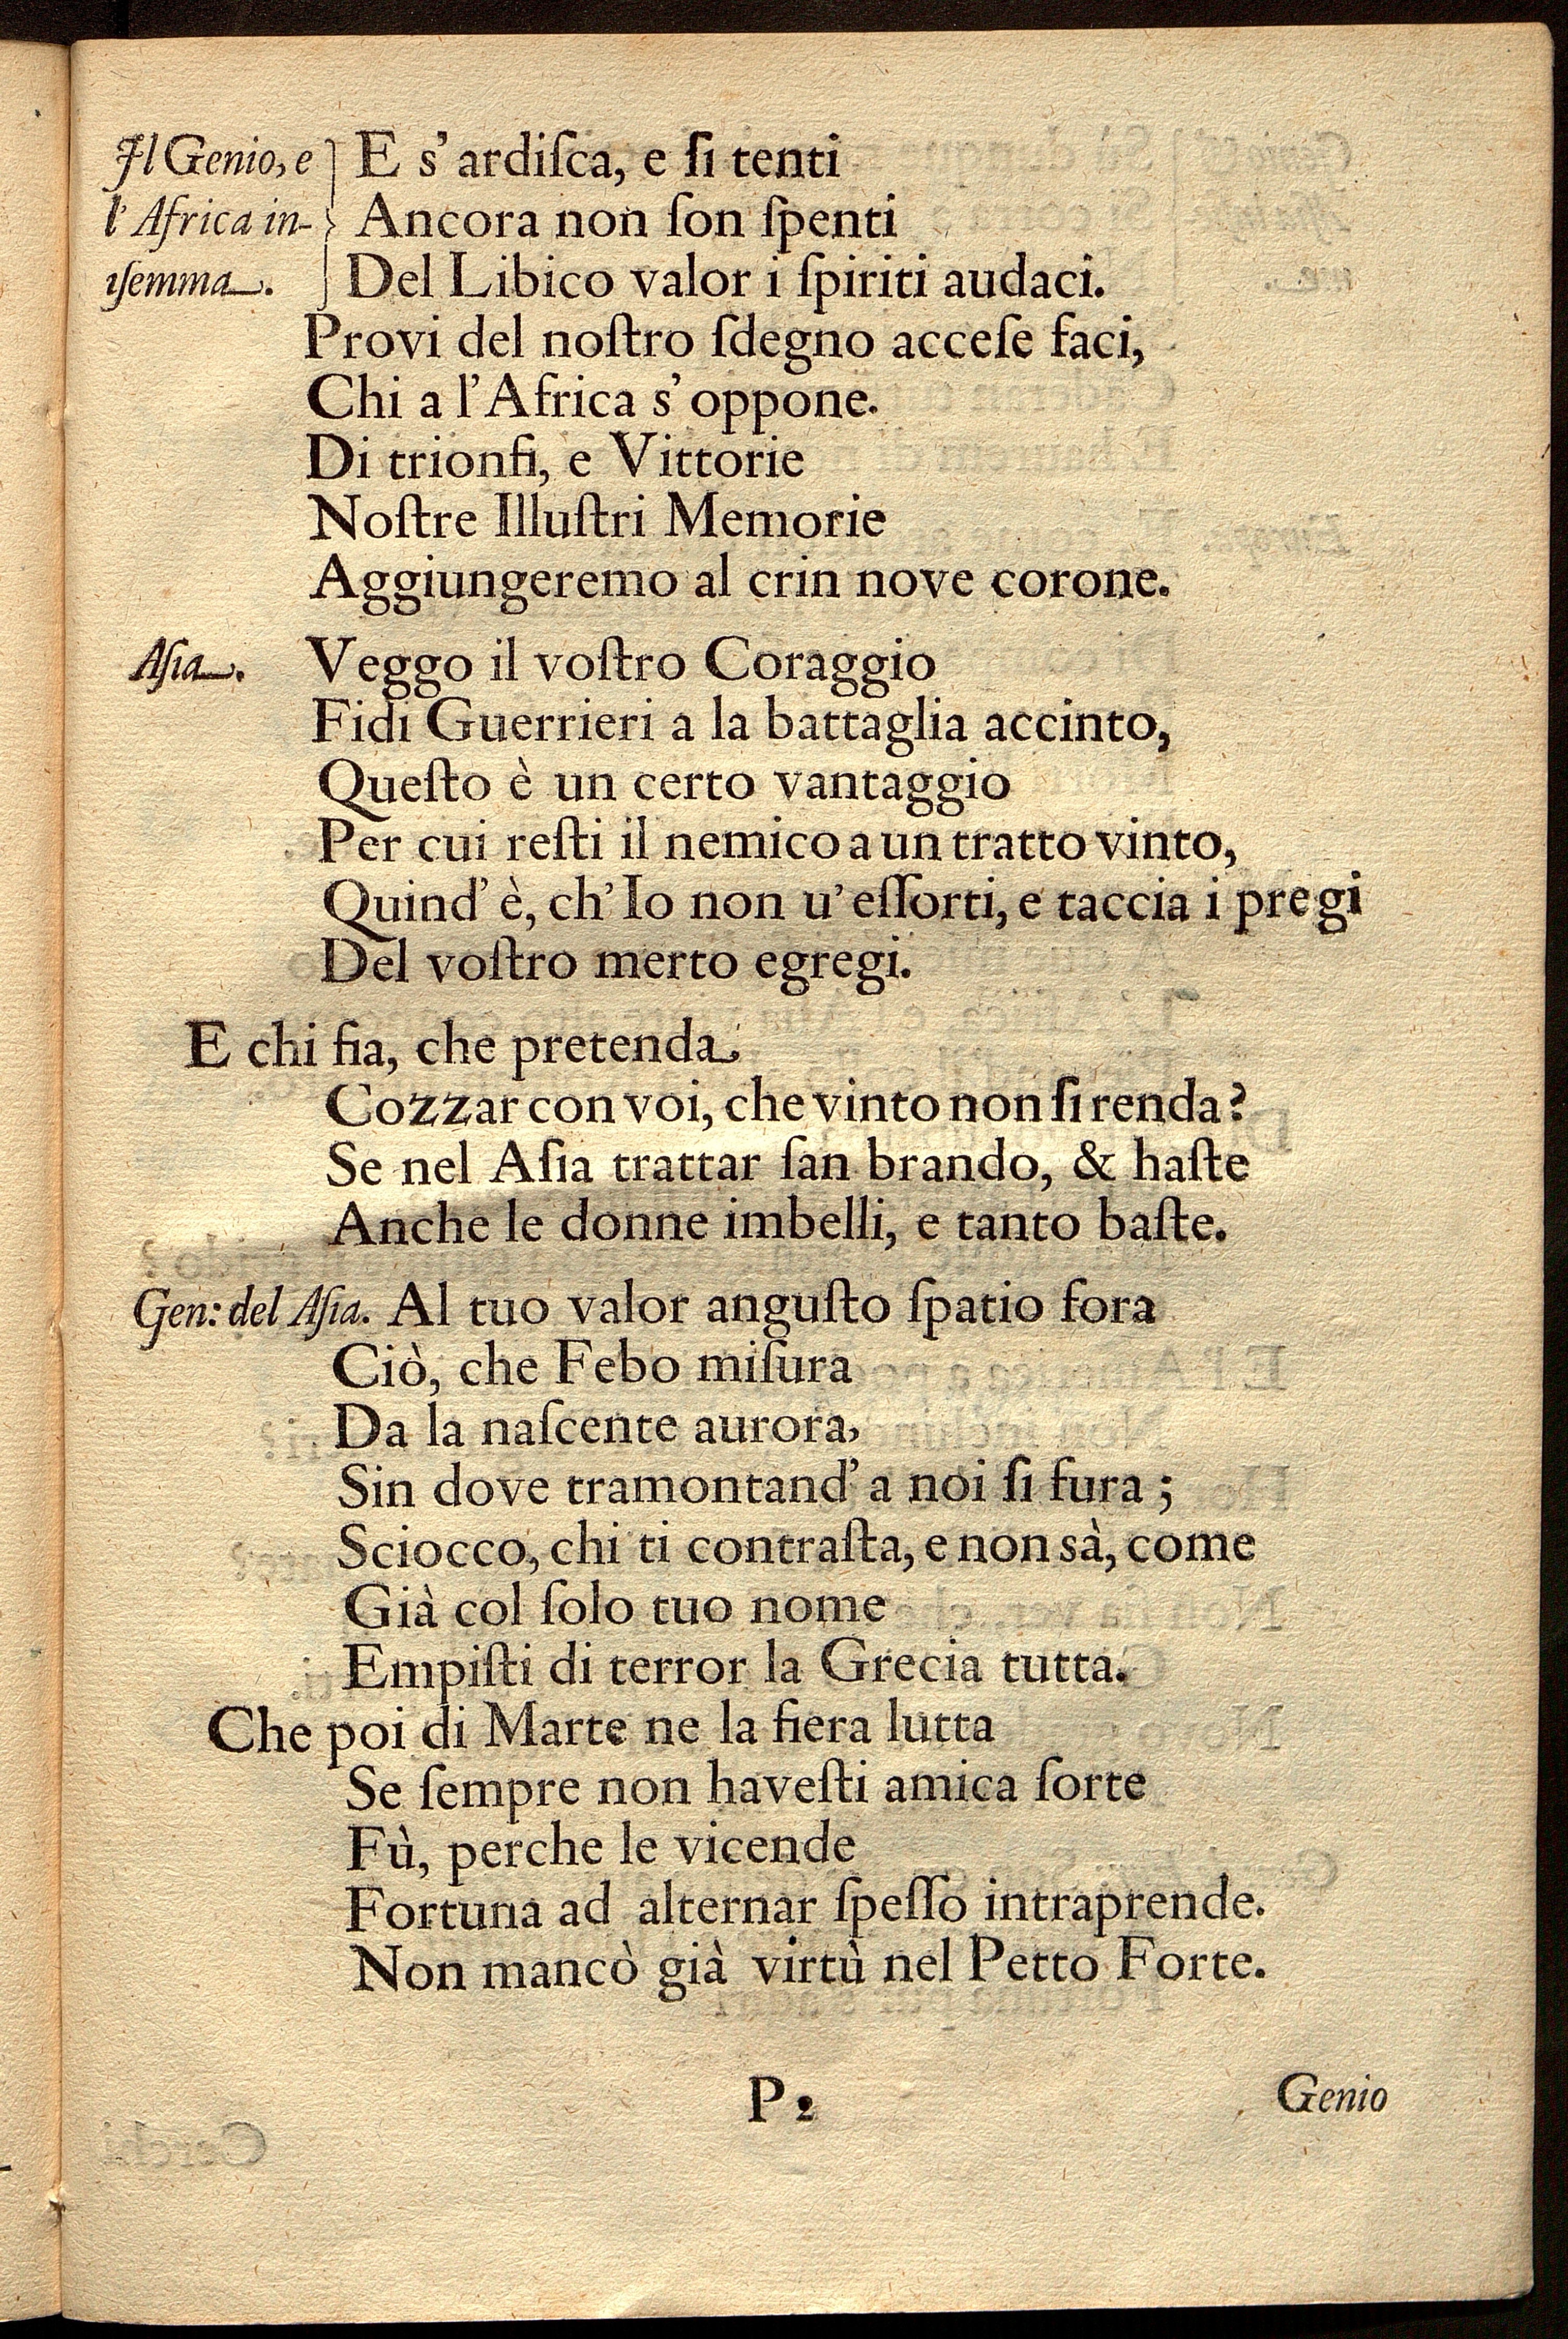 Il Genio, e } E s' ardiſca, e ſi tenti
l' Africa in- } Ancora non ſon ſpenti
ıſemma. } Del Libico valor i ſpiriti audaci.
Provi del noſtro ſdegno acceſe faci,
Chi a l'Africa s' oppone.
Di trionfi, e Vittorie
Noſtre Illuſtri Memorie
Aggiungeremo al crin nove corone.
Aſia. Veggo il voſtro Coraggio
Fidi Guerrieri a la battaglia accinto,
Queſto è un certo vantaggio
Per cui reſti il nemico a un tratto vinto,
Quind' è, ch' Io non u' eſſorti, e taccia i pregi
Del voſtro merto egregi.
E chi fia, che pretenda
Cozzar con voi, che vinto non ſi renda?
Se nel Aſia trattar ſan brando, & haſte
Anche le donne imbelli, e tanto baſte.
Gen: del Aſia. Al tuo valor anguſto ſpatio fora
Ciò, che Febo miſura
Da la naſcente aurora,
Sin dove tramontand' a noi ſi fura ;
Sciocco, chi ti contraſta, e non sà, come
Già col ſolo tuo nome
Empiſti di terror la Grecia tutta.
Che poi di Marte ne la fiera lutta
Se ſempre non haveſti amica ſorte
Fù, perche le vicende
Fortuna ad alternar ſpeſſo intraprende.
Non mancò già virtù nel Petto Forte.
P 2 Genio